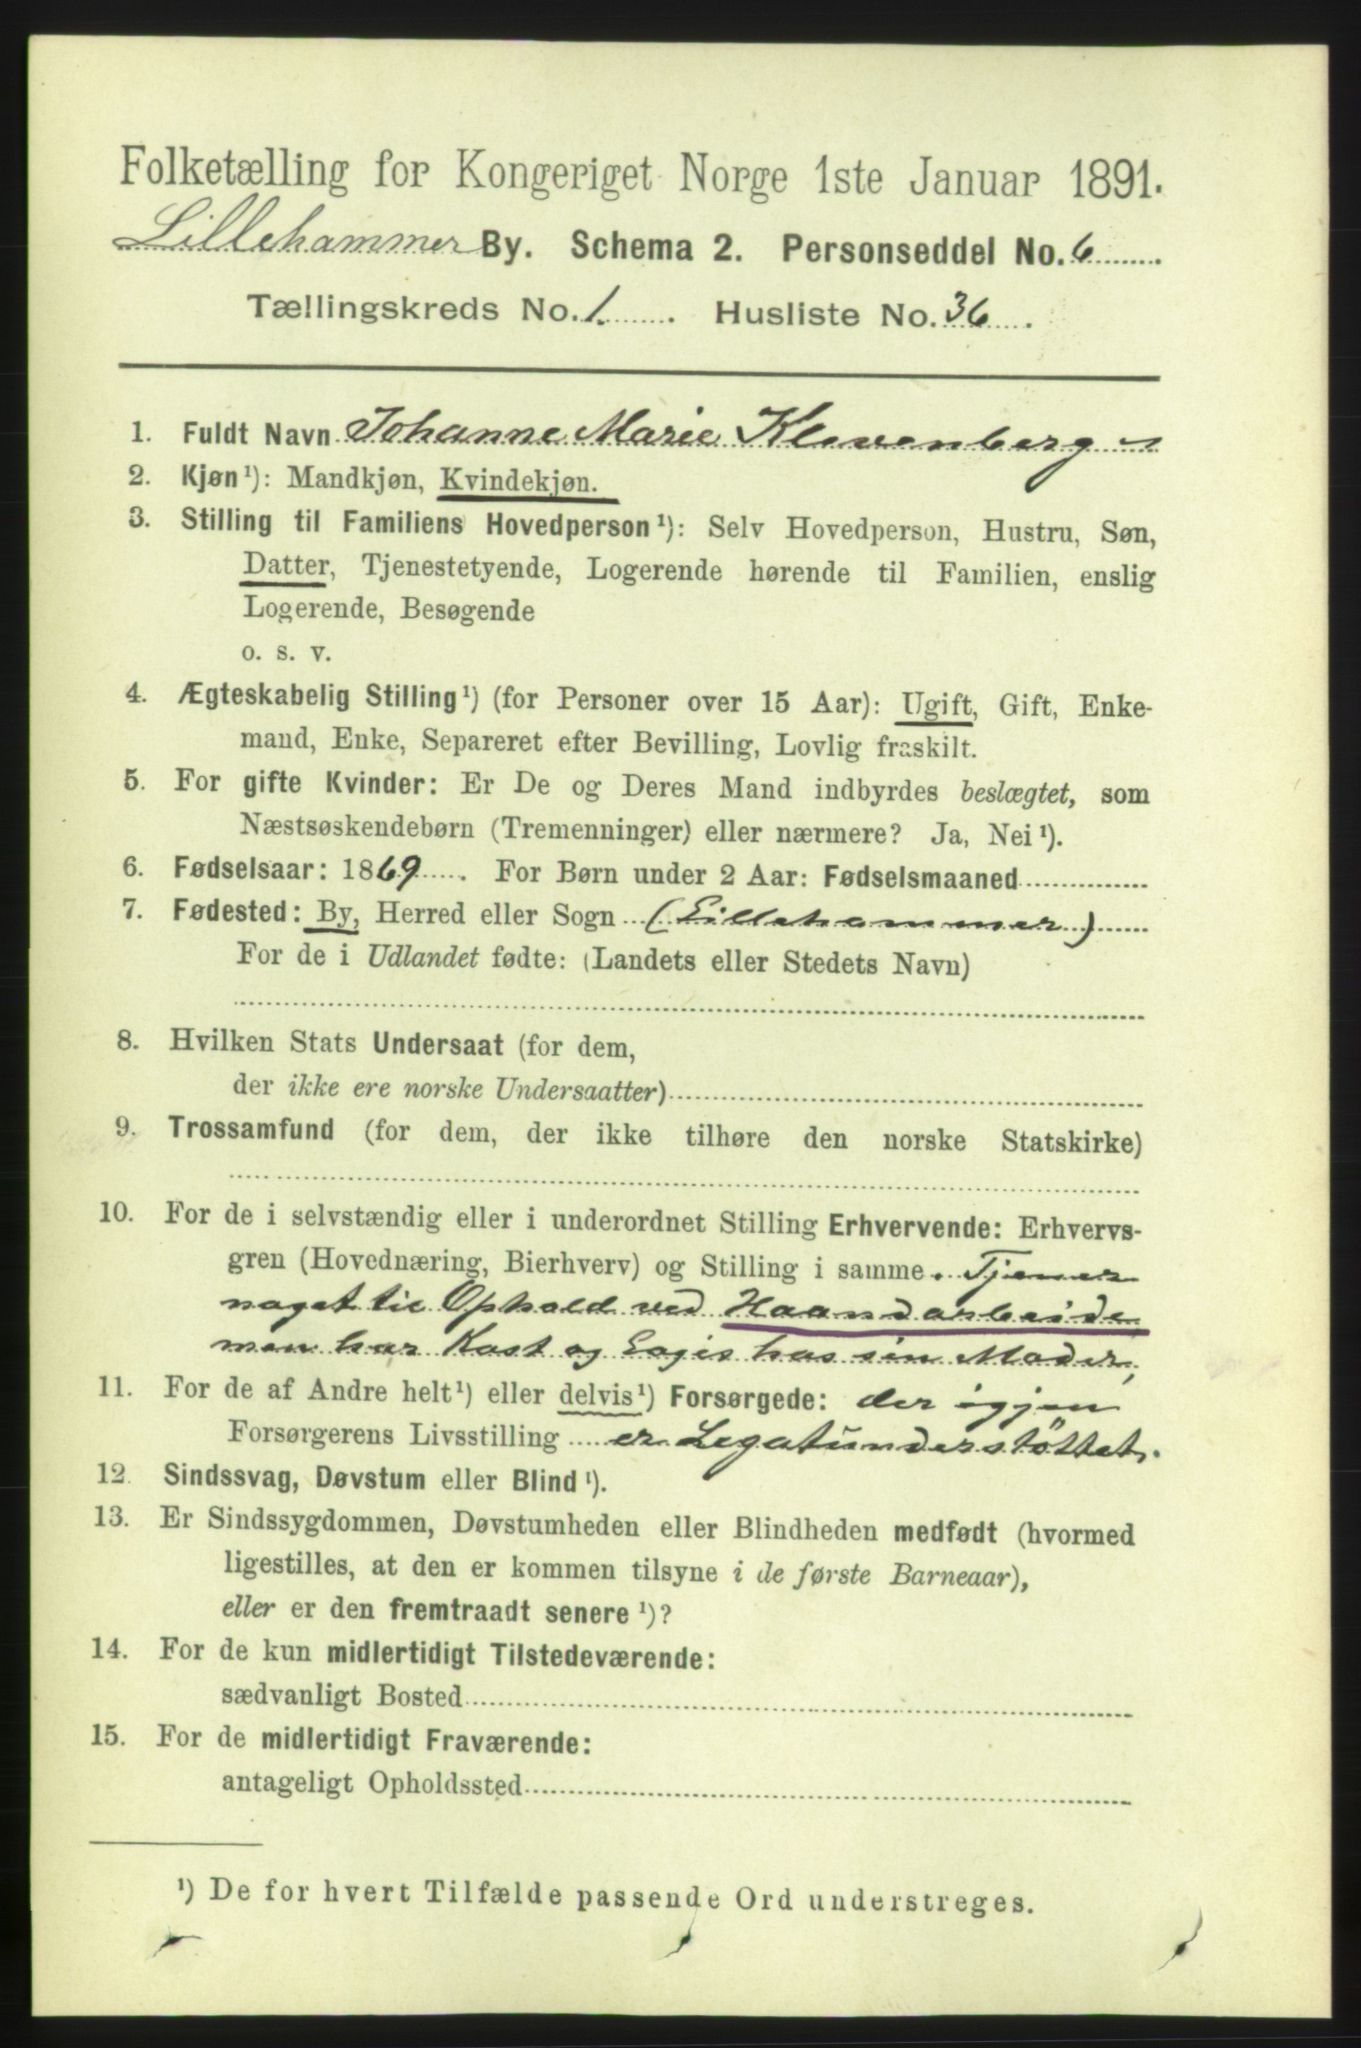 Folketælling for Kongeriget Norge 1ste Januar 1891.
Lillehammer By. Schema 2. Personseddel No. 6
Tællingskreds No. 1. Husliste No. 36.
1. Fuldt Navn Johanne Marie Klevenberg
2. Kjøn¹): Mandkjøn, Kvindekjøn.
3. Stilling til Familiens Hovedperson¹): Selv Hovedperson, Hustru, Søn,
Datter, Tjenestetyende, Logerende hørende til Familien, enslig
Logerende, Besøgende
o. s. v.
4. Ægteskabelig Stilling¹) (for Personer over 15 Aar): Ugift, Gift, Enke-
mand, Enke, Separeret efter Bevilling, Lovlig fraskilt.
5. For gifte Kvinder: Er De og Deres Mand indbyrdes beslægtet, som
Næstsøskendebørn (Tremenninger) eller nærmere? Ja, Nei¹).
6. Fødselsaar: 1869. For Børn under 2 Aar: Fødselsmaaned
7. Fødested: By, Herred eller Sogn (Lillehammer)
For de i Udlandet fødte: (Landets eller Stedets Navn)
8. Hvilken Stats Undersaat (for dem,
der ikke ere norske Undersaatter)
9. Trossamfund (for dem, der ikke tilhøre den norske Statskirke)
10. For de i selvstændig eller i underordnet Stilling Erhvervende: Erhvervs-
gren (Hovednæring, Bierhverv) og Stilling i samme. Tjener
noget til Ophold ved Haandarbeide
men har Kost og Logis hos sin Moder,
11. For de af Andre helt¹) eller delvis¹) Forsørgede: der igjen
Forsørgerens Livsstilling er Legatunderstöttet.
12. Sindssvag, Døvstum eller Blind¹).
13. Er Sindssygdommen, Døvstumheden eller Blindheden medfødt (hvormed
ligestilles, at den er kommen tilsyne i de første Barneaar),
eller er den fremtraadt senere¹)?
14. For de kun midlertidigt Tilstedeværende:
sædvanligt Bosted
15. For de midlertidigt Fraværende:
antageligt Opholdssted
¹) De for hvert Tilfælde passende Ord understreges.